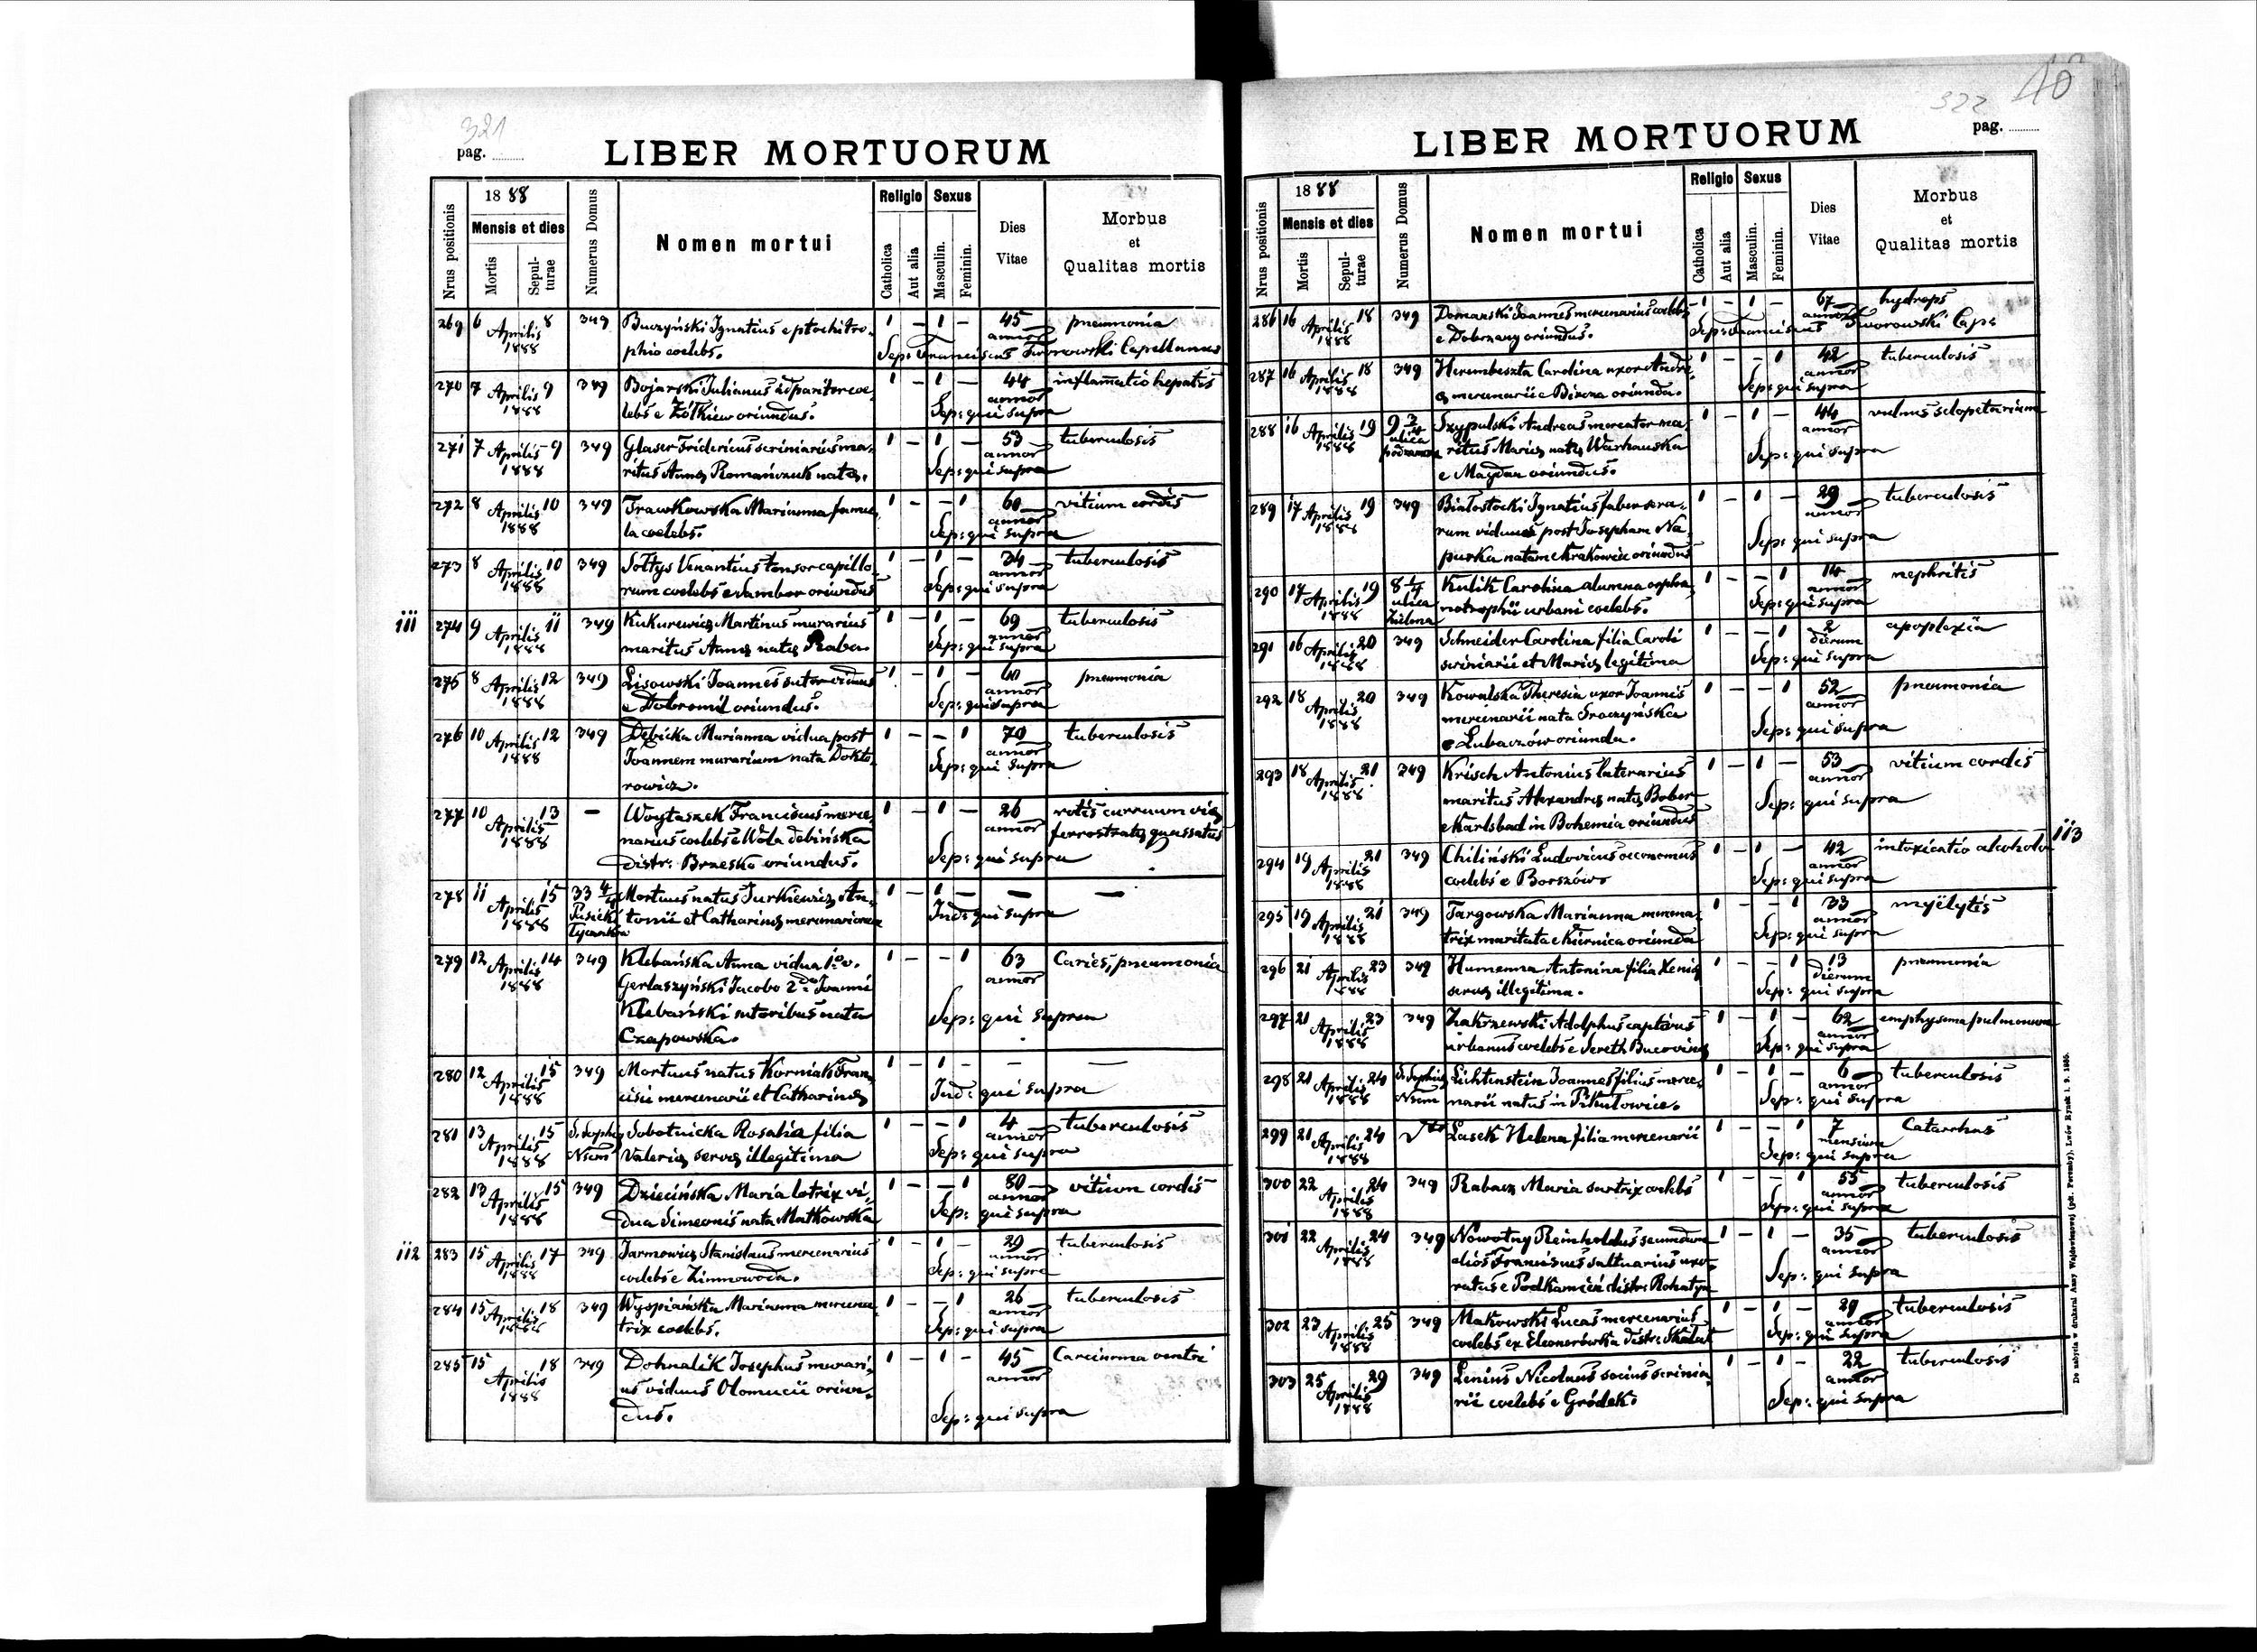 321
pag.
LIBER MORTUORUM
Nrus positionis
1888
Mensis et dies
Mortis
Sepul-
turae
Numerus Domus
Nomen mortui
Religio
Catholica
Aut alia
Sexus
Masculin.
Feminin.
Dies
Vitae
Morbus
et
Qualitas mortis
269 6 Aprilis 8 349 Buczyński Ignatius e ptochotro- 1 – 1 – 45 pneumonia
1888 phio coelebs. annor
Sep: Franciscus Tworowski Capellanus
270 7 Aprilis 9 349 Bojarski Julianus apparitor coe- 1 – 1 – 44 inflamatio hepatis
1888 lebs e Żółkiew oriundus. annor
Sep: qui supra
271 7 Aprilis 9 349 Glaser Fridericus scriniarius ma- 1 – 1 – 53 tuberculosis
1888 ritus Annae Romańczuk natae. annor
Sep: qui supra
272 8 Aprilis 10 349 Trawkowska Marianna famu- 1 – – 1 60 vitium cordis
1888 la coelebs. annor
Sep: qui supra
273 8 Aprilis 10 349 Sołtys Venantius tonsor capillo- 1 – 1 – 34 tuberculosis
1888 rum coelebs e Sambor oriundus annor
Sep: qui supra
iii 274 9 Aprilis 11 349 Kukurewicz Martinus murarius 1 – 1 – 69 tuberculosis
1888 maritus Annae natae Raba. annor
Sep: qui supra
275 8 Aprilis 12 349 Lisowski Joannes sutor viduus 1 – 1 – pneumonia
1888 e Dobromil oriundus. annor
Sep: qui supra
276 10 Aprilis 12 349 Dębicka Marianna vidua post 1 – – 1 70 tuberculosis
1888 Joannem murarium nata Dokto- annor
rowicz. Sep: qui supra
277 10 Aprilis 13 – Woytaszek Franciscus merce- 1 – 1 – 26 rotis curruum viae
1888 narius coelebs e Wola dębińska annor ferrostratae quassatus
distr: Brzesko oriundus. Sep: qui supra
278 11 Aprilis 15 33 4/4 Mortuus natus Jurkiewicz An- 1 – 1 – – –
1888 tonii et Catharinae mercenariorum
Ind: qui supra
279 12 Aprilis 14 349 Klebańska Anna vidua 1o v. 1 – – 1 63 Caries, pneumonia
1888 Gerlaszyński Jacobo 2do Joanni annor
Klebański sutoribus nata Sep: qui supra
Czapowska.
280 12 Aprilis 15 349 Mortuus natus Korniak Fran- 1 – 1 – – –
1888 cisci mercenarii et Catharinae Ind: qui supra
281 13 Aprilis 15 S. Sophiae Sobotnicka Rosalia filia 1 – – 1 4 tuberculosis
1888 Nrum Valeriae servae illegitima annor
Sep: qui supra
282 13 Aprilis 15 349 Dziecińska Maria lotrix vi- 1 – – 1 80 vitium cordis
1888 dua Simeonis nata Matkowska annor
Sep: qui supra
ii2 283 15 Aprilis 17 349 Jarmowicz Stanislaus mercenarius 1 – 1 – 29 tuberculosis
1888 coelebs e Zimnowoda. annor
Sep: qui supra
284 15 Aprilis 18 349 Wyspiańska Marianna mercena- 1 – – 1 26 tuberculosis
1888 trix coelebs. annor
Sep: qui supra
285 15 Aprilis 18 349 Dohnalik Josephus murari- 1 – 1 – 45 Carcinoma ventri
1888 us viduus Olomucii oriun- annor
dus. Sep: qui supra
40
322
pag.
LIBER MORTUORUM
Nrus positionis
1888
Mensis et dies
Mortis
Sepul-
turae
Numerus Domus
Nomen mortui
Religio
Catholica
Aut alia
Sexus
Masculin.
Feminin.
Dies
Vitae
Morbus
et
Qualitas mortis
286 16 Aprilis 18 349 Domański Joannes mercenarius coelebs 1 – 1 – 67 hydrops
1888 e Dobrzany oriundus. annor
Sep: Franciscus Tworowski Cap:
287 16 Aprilis 18 349 Herembeszta Carolina uxor Andre- 1 – – 1 42 tuberculosis
1888 ae mercenarii e Bircza oriunda. annor
Sep: qui supra
288 16 Aprilis 19 9 3/4 Szypulski Andreas mercator ma- 1 – 1 – 44 vulnus sclopetarium
1888 ulica ritus Mariae natae Warhauska annor
e Magdan oriundus. Sep: qui supra
289 17 Aprilis 19 349 Białostocki Ignatius faber sera- 1 – 1 – 29 tuberculosis
1888 rum viduus post Josepham Na- annor
purka natam e Krakowiec oriundus Sep: qui supra
290 17 Aprilis 19 8 1/4 Kulik Carolina alumna orpha- 1 – – 1 14 nephritis
1888 ulica notrophii urbani coelebs. annor
Zielona Sep: qui supra
291 16 Aprilis 20 349 Schneider Carolina filia Caroli 1 – – 1 2 apoplexia
1888 scriniarii et Mariae legitima dierum
Sep: qui supra
292 18 Aprilis 20 349 Kowalska Theresia uxor Joannis 1 – – 1 52 pneumonia
1888 mercenarii nata Sroczyńska annor
e Lubaczów oriunda. Sep: qui supra
293 18 Aprilis 21 349 Krisch Antonius laterarius 1 – 1 – 53 vitium cordis
1888 maritus Alexandrae natae Bober annor
e Karlsbad in Bohemia oriundus Sep: qui supra
294 19 Aprilis 21 349 Chiliński Ludovicus oeconomus 1 – 1 – 42 intoxicatio alcoholo ii3
1888 coelebs e Borszów annor
Sep: qui supra
295 19 Aprilis 21 349 Targowska Marianna mercena- 1 – – 1 33 myëlytis
1888 trix maritata e Kurnica oriunda annor
Sep: qui supra
296 21 Aprilis 23 349 Humenna Antonina filia Xeniae 1 – – 1 13 pneumonia
1888 servae illegitima. dierum
Sep: qui supra
297 21 Aprilis 23 349 Zakrzewski Adolphus captivus 1 – 1 – 62 emphysema pulmonum
1888 urbanus coelebs e Sereth Bucovinae annor
Sep: qui supra
298 21 Aprilis 24 S. Sophiae Lichtenstein Joannes filius merce- 1 – 1 – 6 tuberculosis
1888 Nrum narii natus in Pikułowice. annor
Sep: qui supra
299 21 Aprilis 24 Lasek Helena filia mercenarii 1 – – 1 7 Catarrhus
1888 mensium
Sep: qui supra
300 22 Aprilis 24 349 Rabacz Maria sartrix coelebs 1 – – 1 55 tuberculosis
1888 annor
Sep: qui supra
301 22 Aprilis 24 349 Nowotny Reinholdus secundum 1 – 1 – 35 tuberculosis
1888 alios Franciscus saltuarius uxo- annor
ratus e Podkamień distr: Rohatyn Sep: qui supra
302 23 Aprilis 25 349 Makowski Lucas mercenarius 1 – 1 – 29 tuberculosis
1888 coelebs ex Eleonorówka distr: Skałat annor
Sep: qui supra
303 25 Aprilis 29 349 Lenius Nicolaus socius scrinia- 1 – 1 – 22 tuberculosis
1888 rii coelebs e Gródek. annor
Sep: qui supra
De nabycia w drukarni Anny Wajdowiczowej (pdr. Poremby), Lwów Rynek l. 9. 1886.